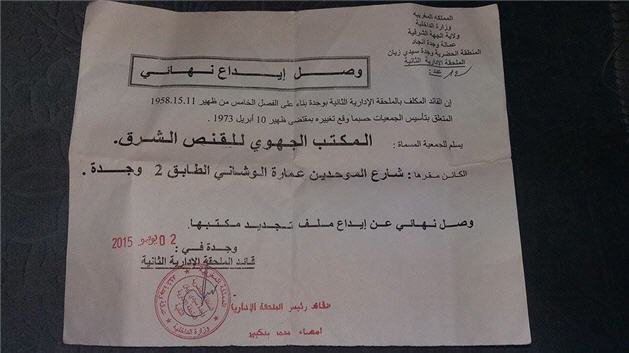 المملكة المغربية
وزارة الداخلية
ولاية الجهة الشرقية
عمالة وجدة أنجاد
المنطقة الحضرية وجدة سيدي زيان
الملحقة الإدارية الثانية
عدد: 12
وصل إيداع نهائي
إن القائد المكلف بالملحقة الإدارية الثانية بوجدة بناء على الفصل الخامس من ظهير 1958.15.11
المتعلق بتأسيس الجمعيات حسبما وقع تغييره بمقتضى ظهير 10 أبريل 1973 .
يسلم للجمعية المسماة : المكتب الجهوي للقنص الشرق.
الكائن مقرها : شارع الموحدين عمارة الوشاني الطابق 2 وجدة .
وصل نهائي عن إيداع ملف تجديد مكتبها.
وجدة في : 02 يونيو 2015
قائد الملحقة الإدارية الثانية
رئيس الملحقة الإدارية
إمضاء محمد بنكبير
المملكة المغربية
وزارة الداخلية